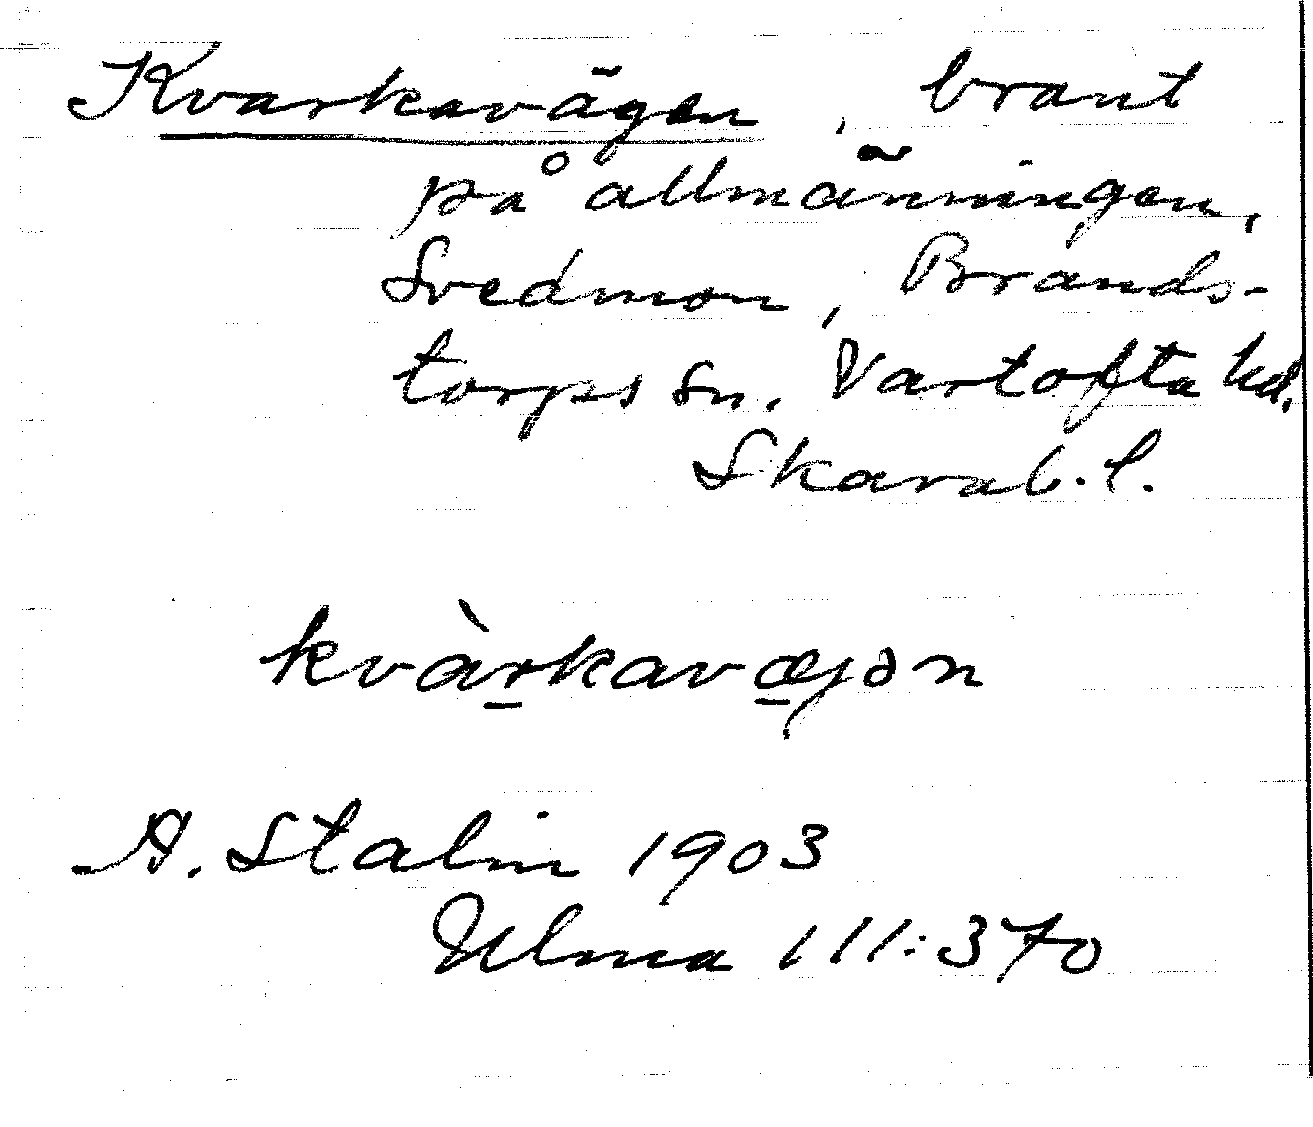 Kvarkavägen, brant
på allmänningen,
Svedmon, Brands-
torps sn. Vartofta hd.
Skarab. l.
kvàrkavæjən
A. Stalin 1903
Ulma 111:370